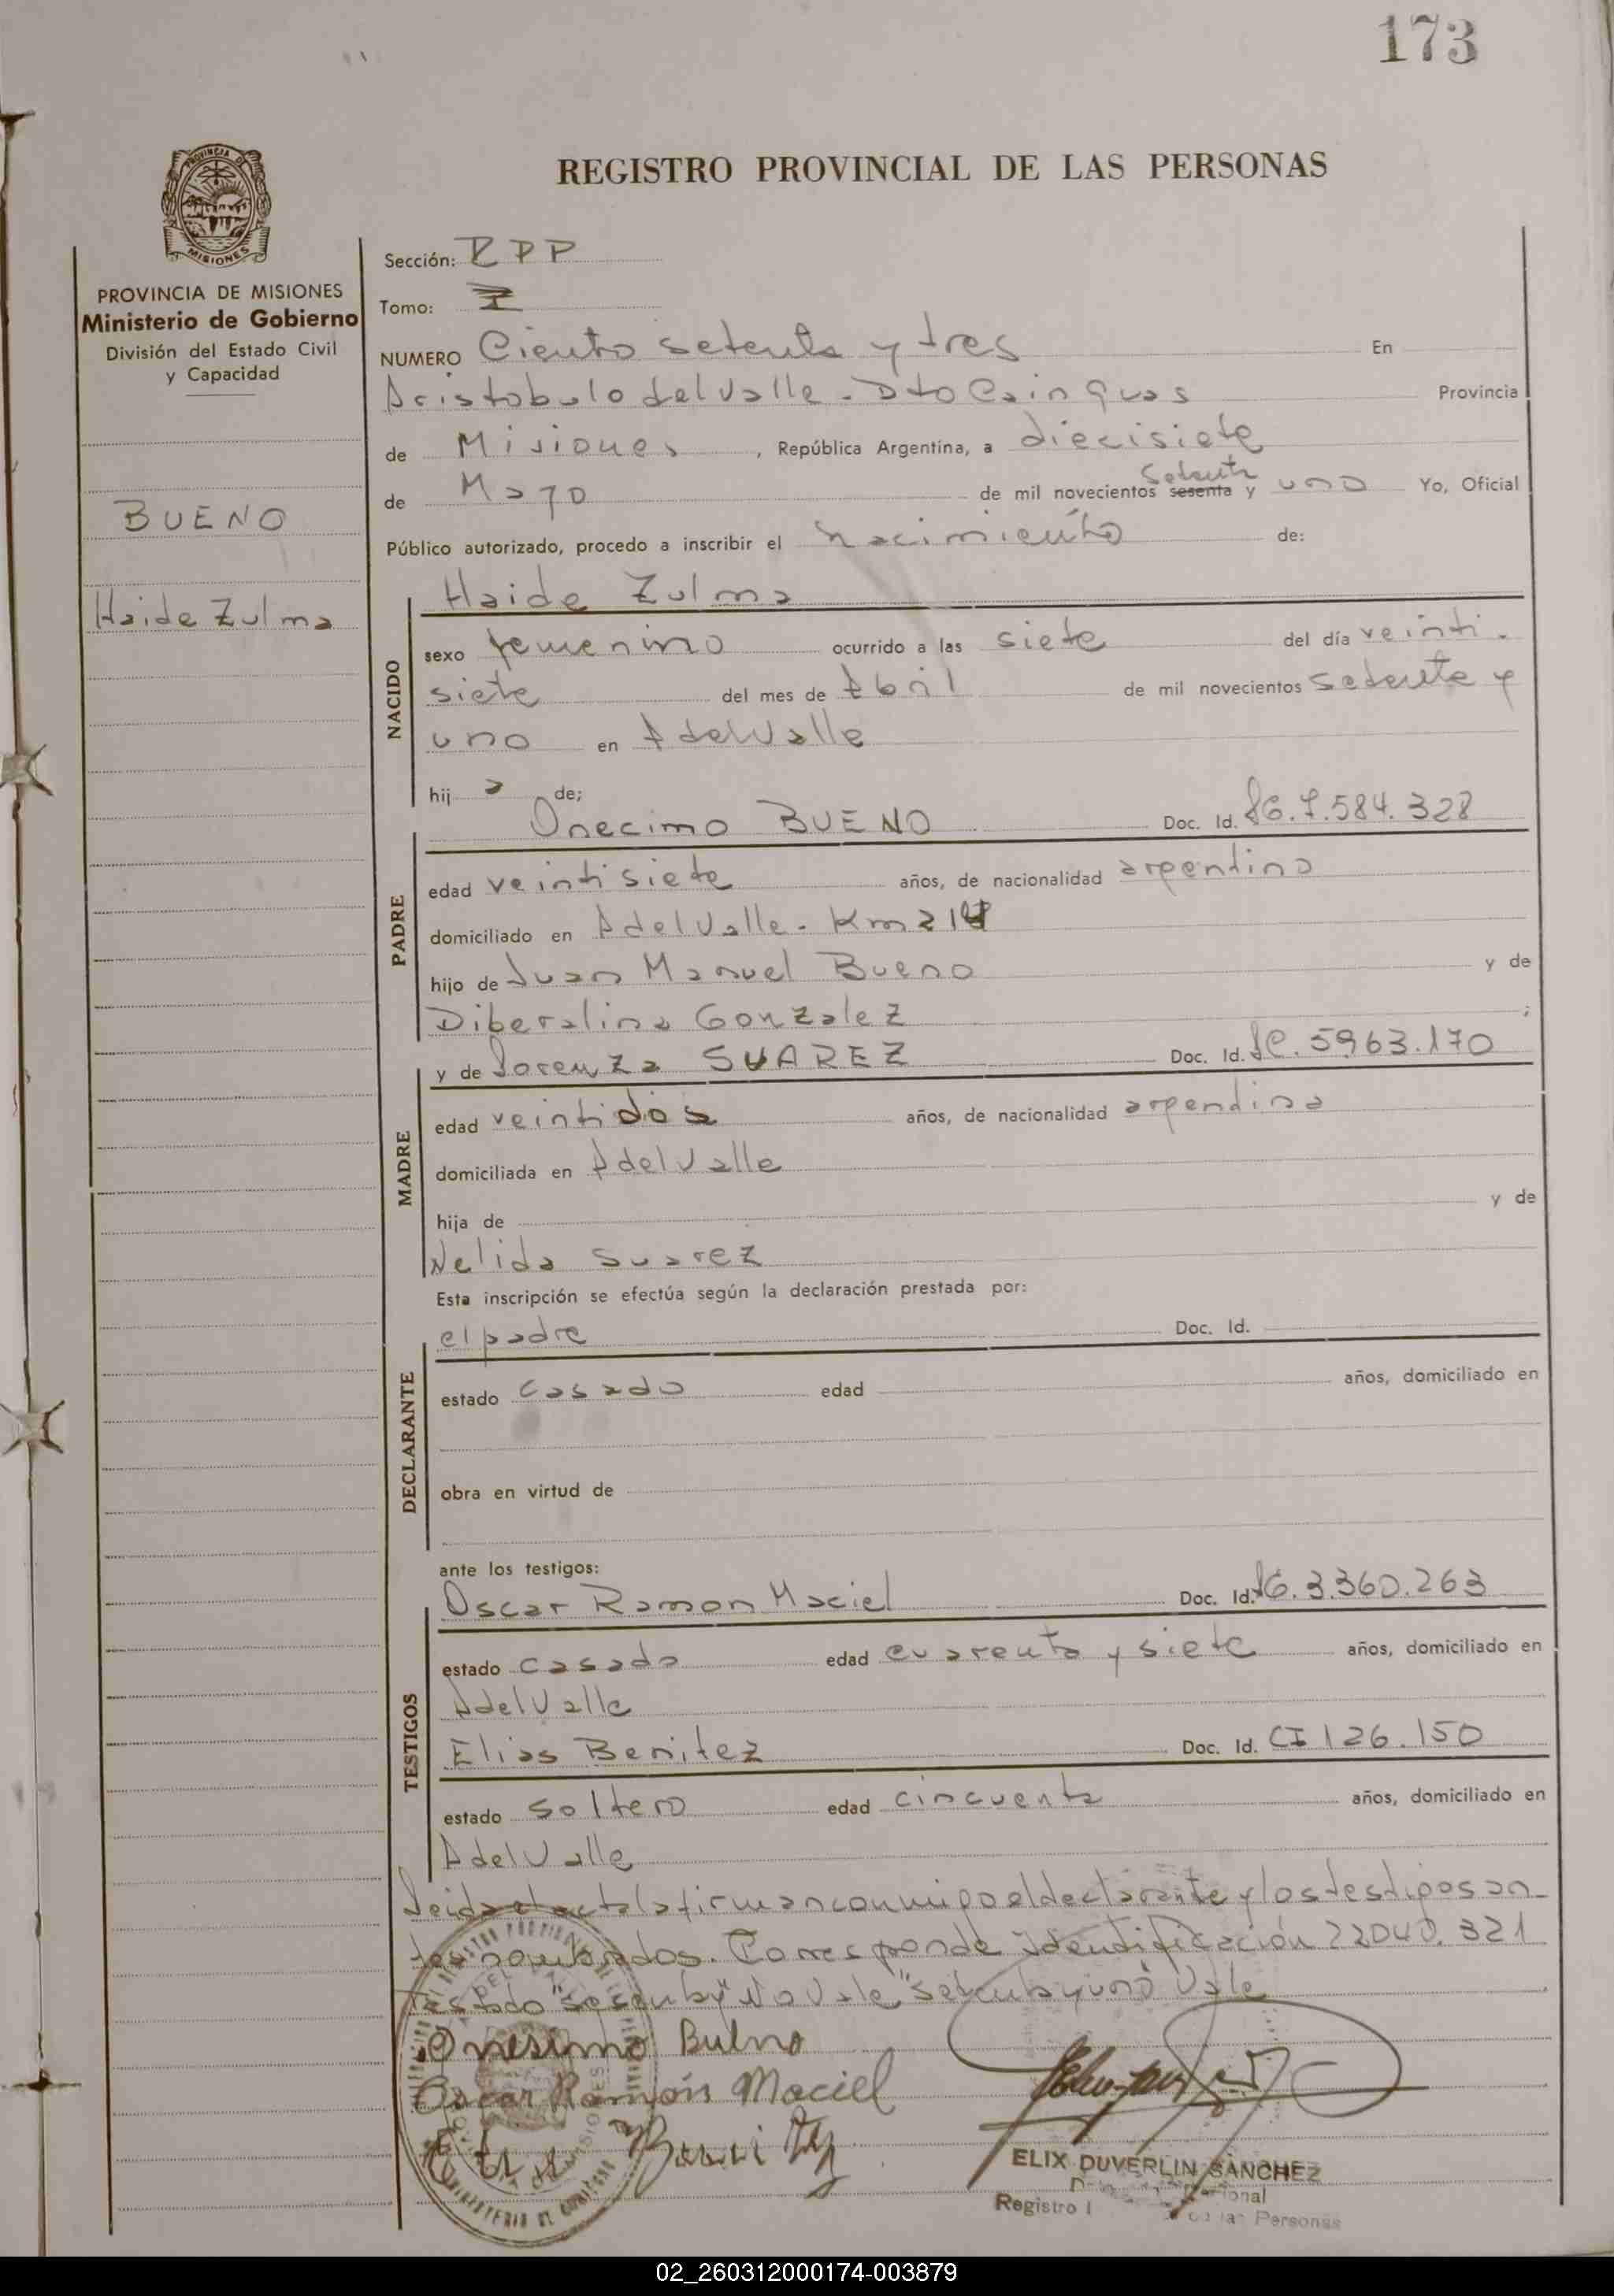 173
REGISTRO PROVINCIAL DE LAS PERSONAS
PROVINCIA DE
MISIONES
PROVINCIA DE MISIONES
Ministerio de Gobierno
División del Estado Civil
y Capacidad
BUENO
Haide Zulma
Sección: RPP
Tomo: I
NUMERO Ciento setenta y tres En
Aristobulo del Valle - Dto Cainguas Provincia
de Misiones, República Argentina, a diecisiete
de Mayo de mil novecientos sesenta setenta y uno Yo, Oficial
Público autorizado, procedo a inscribir el nacimiento de:
NACIDO
Haide Zulma
sexo femenino ocurrido a las siete del día veinti-
siete del mes de Abril de mil novecientos setenta y
uno en A del Valle
hij a de;
PADRE
Onecimo BUENO Doc. Id. 7.584.328
edad veintisiete años, de nacionalidad argentino
domiciliado en A del Valle - Km
hijo de Juan Manuel Bueno y de
Gonzalez ;
MADRE
y de Lorenza SUAREZ Doc. Id. LC. 5963.170
edad veintidos años, de nacionalidad argentina
domiciliada en A del Valle
hija de y de
Nelida Suarez
Esta inscripción se efectúa según la declaración prestada por:
DECLARANTE
el padre Doc. Id.
estado casado edad años, domiciliado en
obra en virtud de
ante los testigos:
TESTIGOS
Oscar Ramon Maciel Doc. Id. 3.360.263
estado casado edad cuarenta y siete años, domiciliado en
A del Valle
Elias Benitez Doc. Id. CI 126.150
estado soltero edad cincuenta años, domiciliado en
A del Valle
Leida el acta la firman conmigo el declarante y los testigos an-
tes nombrados. Corresponde identificación 22040.321
Testado "sesenta y" No Vale "setenta y uno" Vale
Onesimo Bueno
Oscar Ramón Maciel
ELIX DUVERLIN SANCHEZ
Registro
de las Personas
02_260312000174-003879